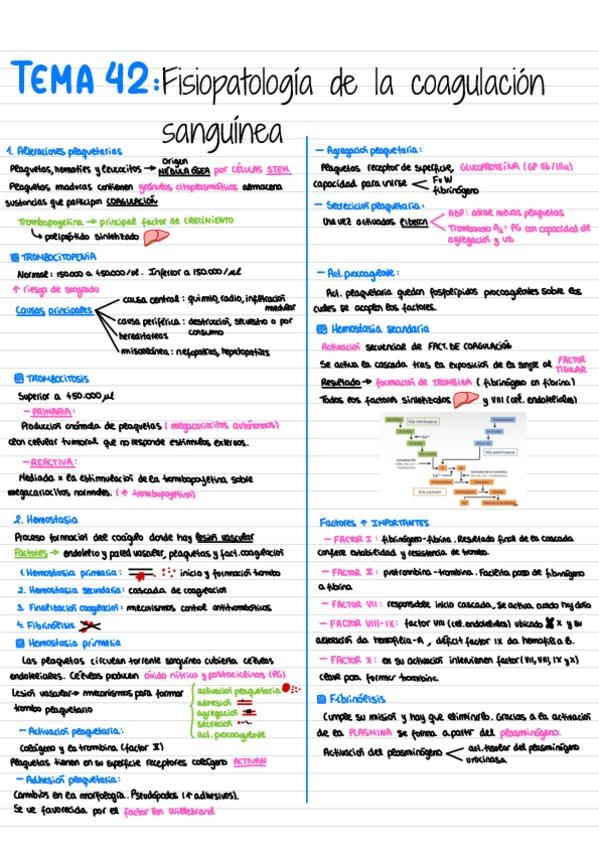 TEMA 42: Fisiopatología de la coagulación
sanguínea
1. Alteraciones plaquetarias
Origen
Plaquetas, hematíes y leucocitos → MÉDULA ÓSEA por CÉLULAS STEM
Plaquetas maduras contienen gránulos citoplasmáticos almacena
sustancias que participan COAGULACIÓN
Trombopoyetina → principal factor de CRECIMIENTO
polipéptido sintetizado
TROMBOCITOPENIA
Normal: 150.000 a 450.000/ul. Inferior a 150.000/ul
↑ riesgo de sangrado
Causas principales
causa central: quimio, radio, infiltración
medular
causa periférica: destrucción, secuestro o por
consumo
hereditarias
miscelánea: nefropatías, hepatopatías
TROMBOCITOSIS
Superior a 450.000 ul
– PRIMARIA:
Producción anómala de plaquetas (megacariocitos autónomos)
clon celular tumoral que no responde estímulos externos.
– REACTIVA:
Mediada x la estimulación de la trombopoyetina sobre
megacariocitos normales. (↑ trombopoyetina)
2. Hemostasia
Proceso formación del coágulo donde hay lesión vascular
Factores → endotelio y pared vascular, plaquetas y fact. coagulación
1. Hemostasia primaria: inicio y formación trombo
2. Hemostasia secundaria: cascada de coagulación
3. Finalización coagulación: mecanismos control antitrombóticos
4. Fibrinólisis
Hemostasia primaria
Las plaquetas circulan torriente sanguíneo cubierta células
endoteliales. Células producen óxido nítrico y prostaciclinas (PG)
Lesión vascular → mecanismos para formar
trombo plaquetario
activación plaquetaria
adhesión
agregación
secreción
act. procoagulante
– Activación plaquetaria:
Colágeno y la trombina (factor II)
Plaquetas tienen en su superficie receptores colágeno ACTIVAN
– Adhesión plaquetaria:
Cambios en la morfología. Pseudópodos (↑ adhesivos).
Se ve favorecida por el factor Von Willebrand
– Agregación plaquetaria:
Plaquetas receptor de superficie, GLUCOPROTEÍNA (GP IIb/IIIa)
capacidad para unirse
FvW
fibrinógeno
– Secreción plaquetaria:
Una vez activados liberan
ADP: atrae nuevas plaquetas
Tromboxano A₂: PG con capacidad de
agregación y VD
– Act. procoagulante:
Act. plaquetaria quedan fosfolípidos procoagulantes sobre los
cuales se acoplan los factores.
Hemostasia secundaria
Activación secuencial de FACT. DE COAGULACIÓN
Se activa la cascada tras la exposición de la sangre al FACTOR
TISULAR
Resultado → formación de TROMBINA (fibrinógeno en fibrina)
Todos los factores sintetizados y VIII (cél. endoteliales)
Vía extrínseca
Vía intrínseca
Vía común
Factores ↑ IMPORTANTES
– FACTOR I: fibrinógeno-fibrina. Resultado final de la cascada
confiere estabilidad y resistencia de trombo.
– FACTOR II: protrombina-trombina. Facilita paso de fibrinógeno
a fibrina
– FACTOR VII: responsable inicio cascada. Se activa cuando hay daño
– FACTOR VIII-IX: factor VIII (cél. endoteliales) ubicado X y su
alteración da hemofilia-A, déficit factor IX da hemofilia B.
– FACTOR X: en su activación intervienen factor (VII, VIII, IX y X)
clave para formar trombina
Fibrinólisis
Cumple su misión y hay que eliminarlo. Gracias a la activación
de la PLASMINA se forma a partir del plasminógeno.
Activación del plasminógeno
act. tisular del plasminógeno
urocinasa